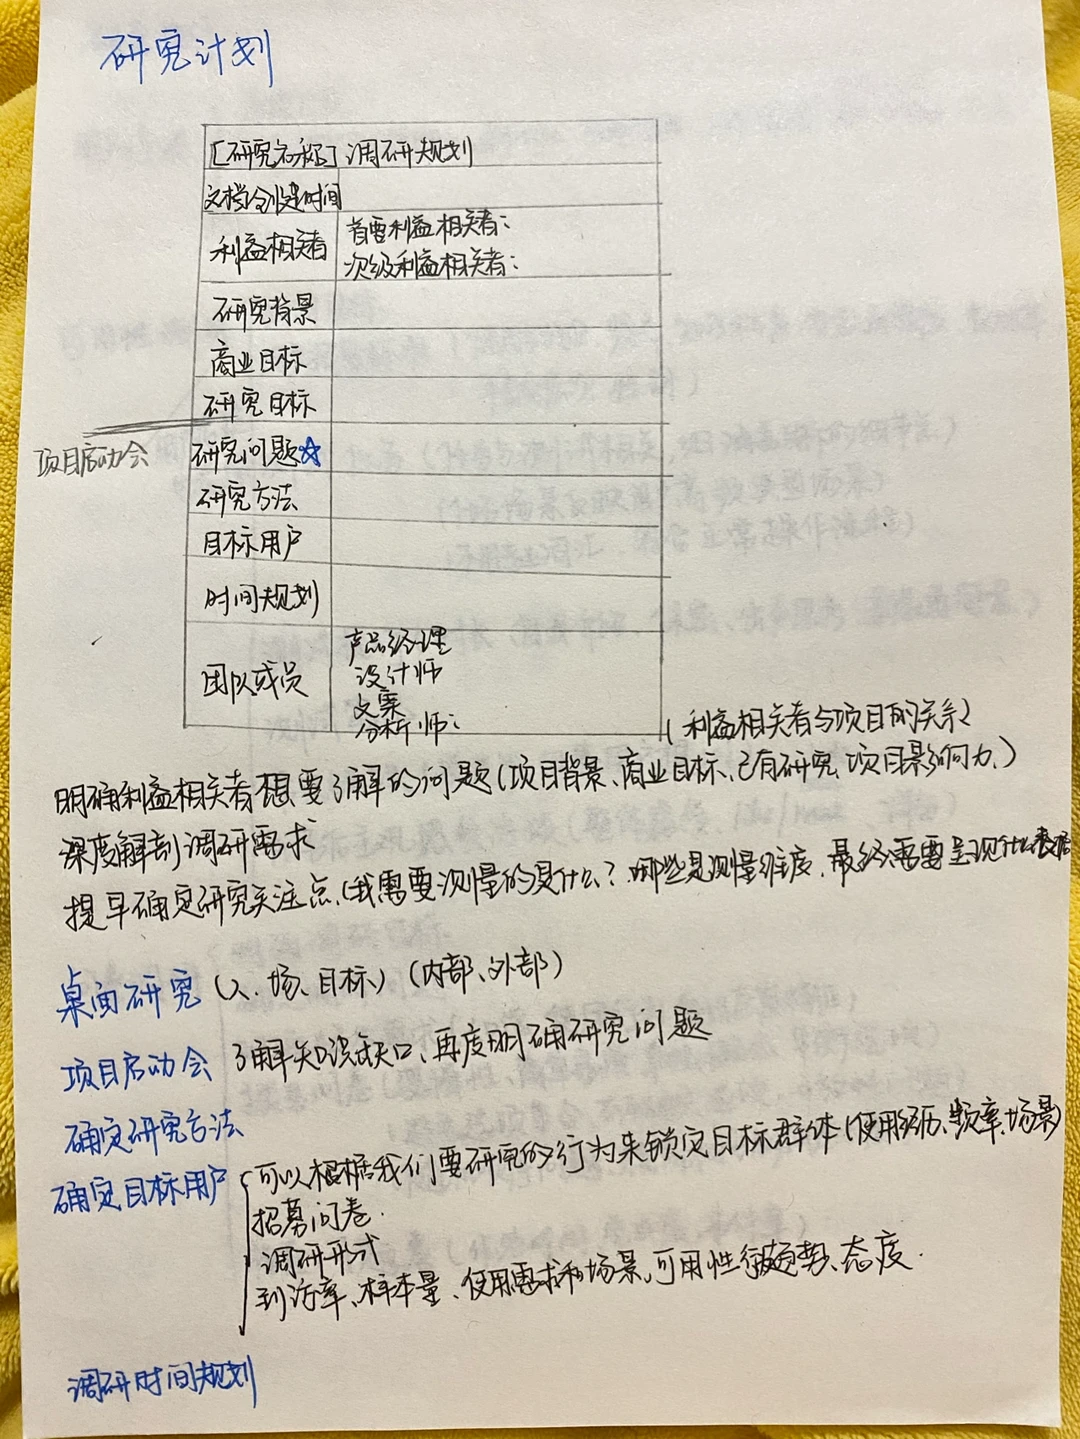 研究计划
[研究名称] 调研规划
文档创建时间
利益相关者 首要利益相关者:
次级利益相关者:
研究背景
商业目标
研究目标
项目启动会 研究问题☆
研究方法
目标用户
时间规划
团队成员 产品经理
设计师
文案
分析师:
(利益相关者与项目的关系)
明确利益相关者想要了解的问题(项目背景、商业目标、已有研究、项目影响力、)
深度解剖调研需求
提早确定研究关注点(我需要测量的是什么?哪些是测量维度、最终需要呈现什么数据
桌面研究 (人、场、目标) (内部、外部)
项目启动会 了解知识缺口、再度明确研究问题
确定研究方法
确定目标用户 可以根据我们要研究的行为来锁定目标群体(使用经历、频率、场景)
招募问卷.
调研形式
到访率、样本量、使用需求和场景,可用性 趋势、态度.
调研时间规划